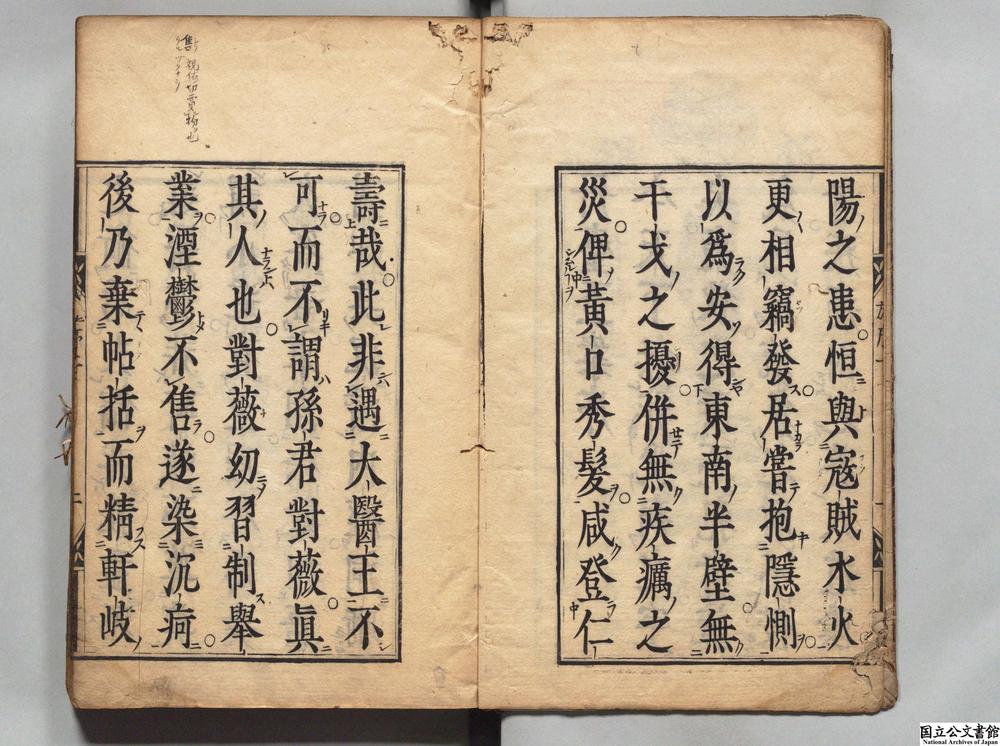 陽之患恒與寇賊水火
更相竊發居嘗抱隱惻
以爲安得東南半壁無
干戈之擾併無疾癘之
災俾黃口秀髮咸登仁
壽哉此非遇大醫王不
可而不謂孫君對薇眞
其人也對薇幼習制舉
業湮鬱不售遂染沉疴
後乃棄帖括而精軒岐
国立公文書館
National Archives of Japan